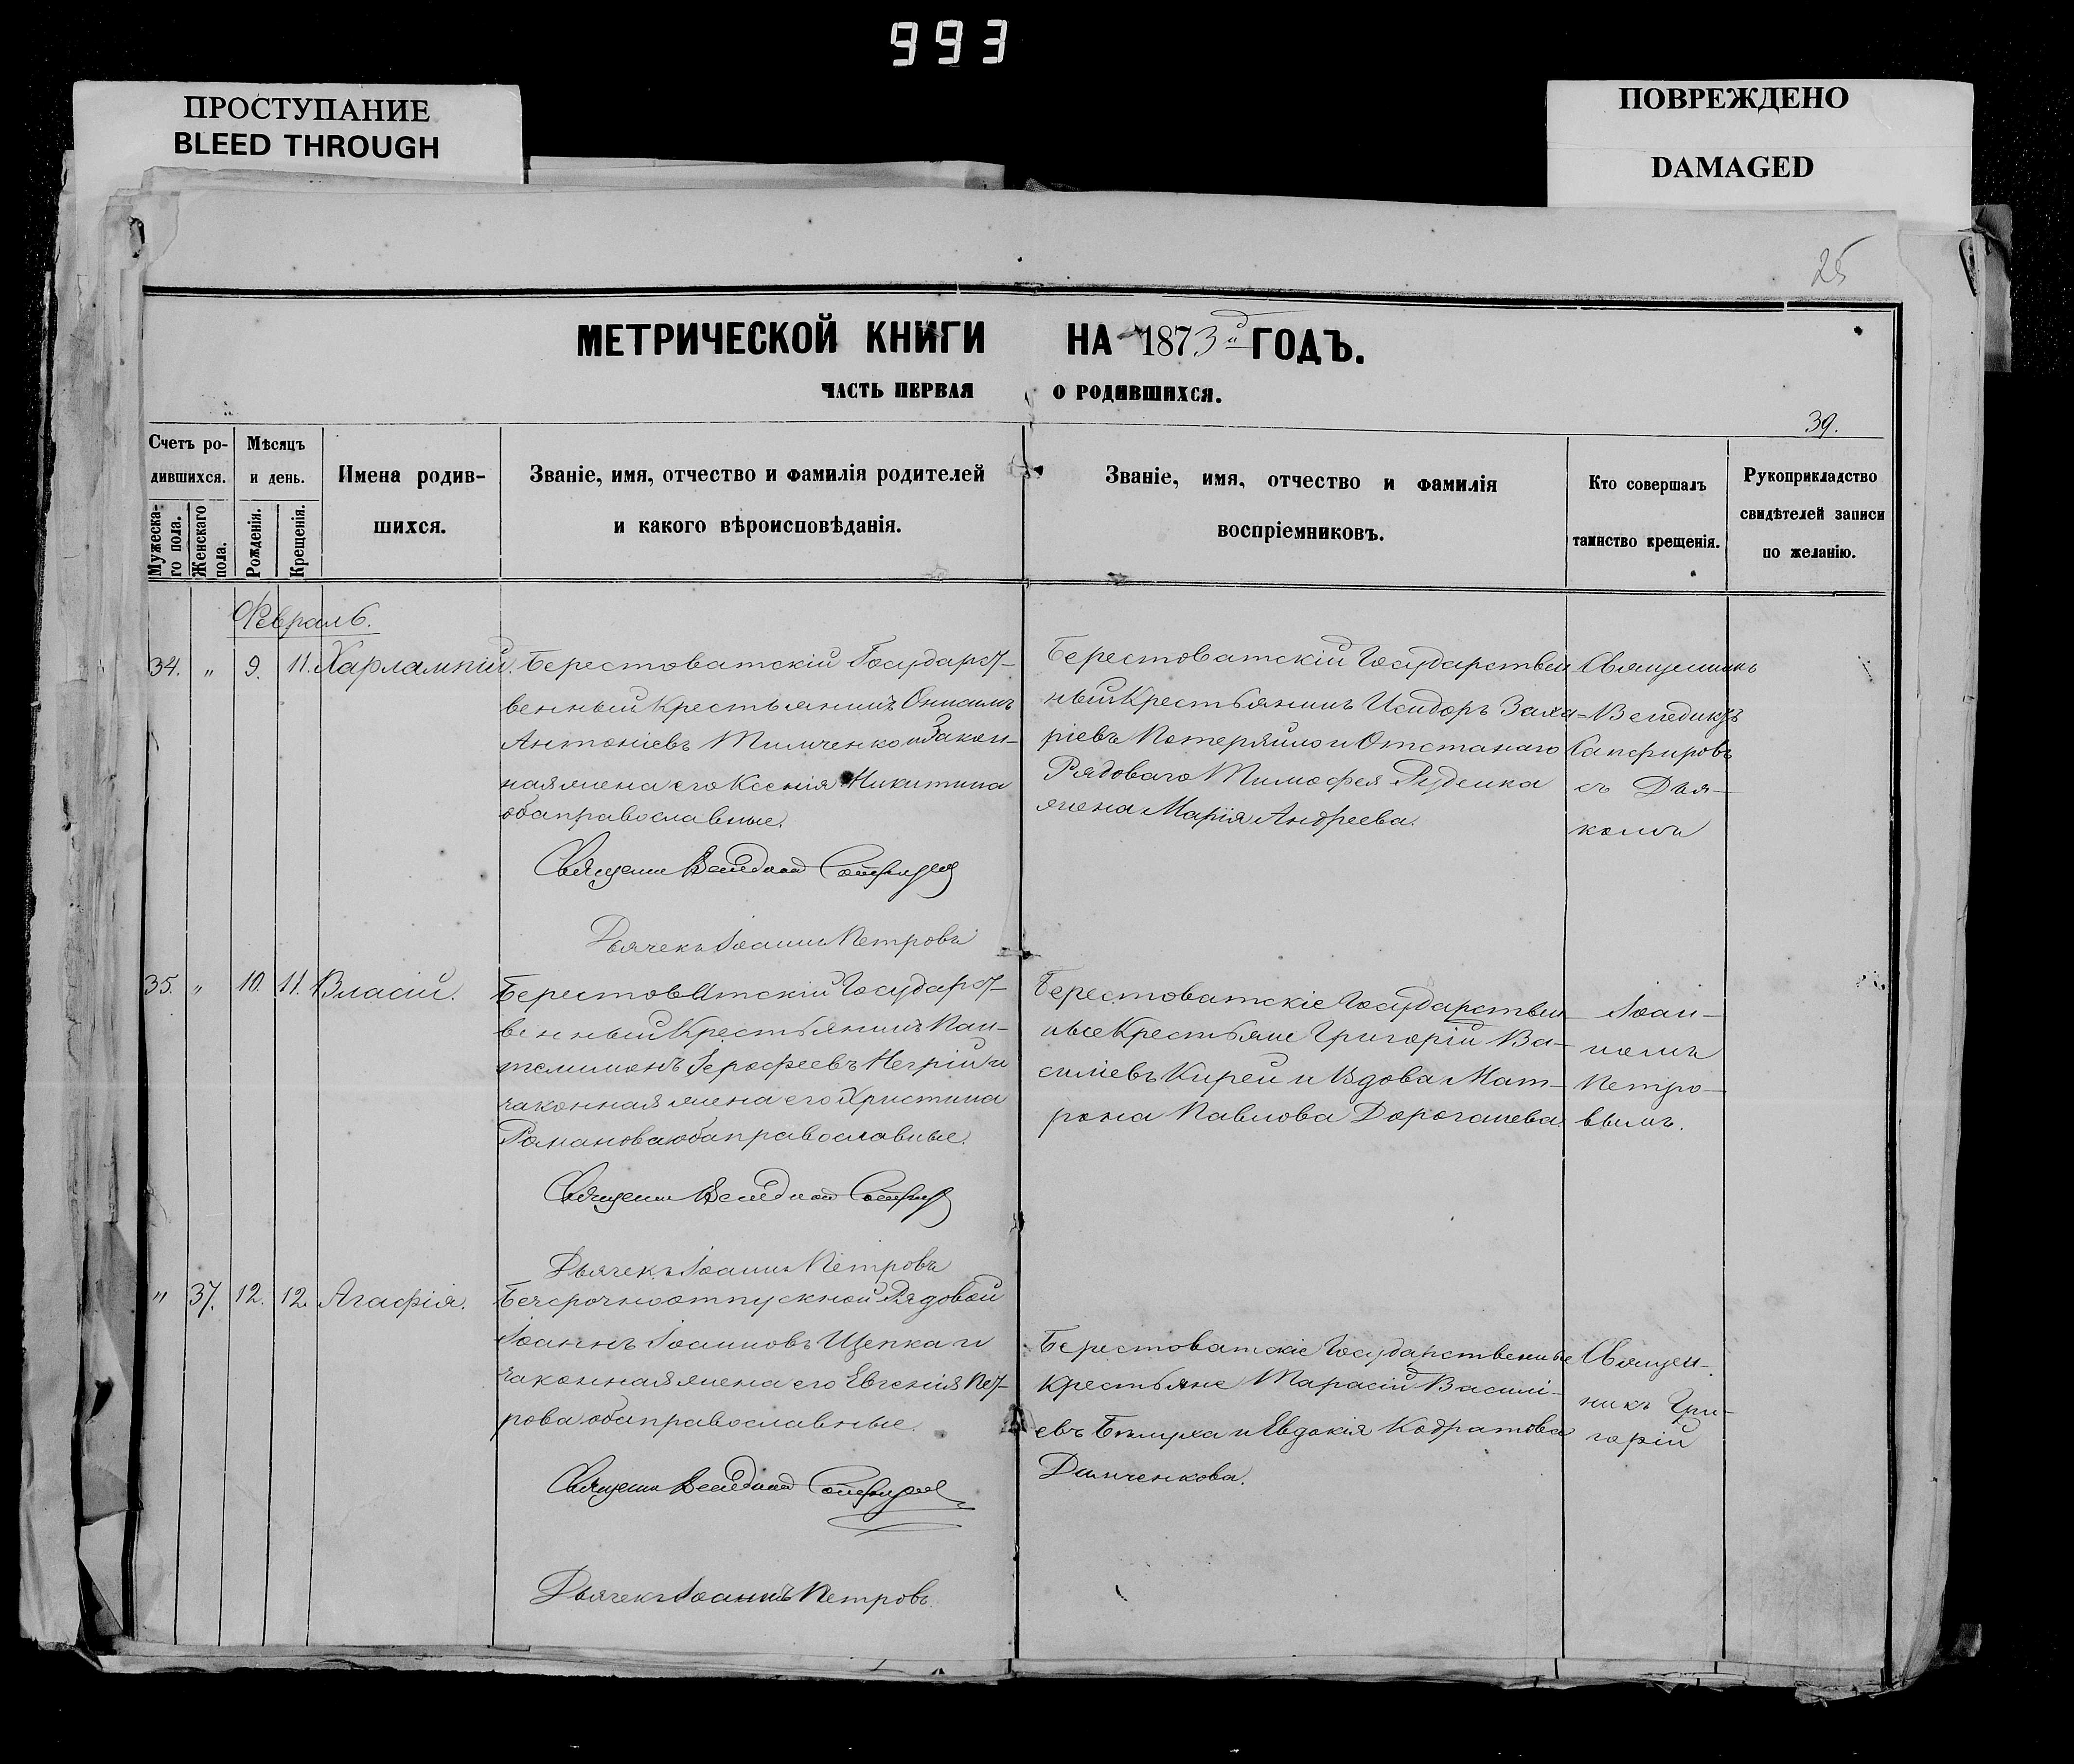 993
ПРОСТУПАНИЕ
BLEED THROUGH
ПОВРЕЖДЕНО
DAMAGED
25
МЕТРИЧЕСКОЙ КНИГИ НА 1873й ГОДЪ.
ЧАСТЬ ПЕРВАЯ О РОДИВШИХСЯ.
39.
Счетъ ро-
дившихся.
Мужеска-
го пола.
Женскаго
пола.
Мѣсяцъ
и день.
Рожденія.
Крещенія.
Имена родив-
шихся.
Званіе, имя, отчество и фамилія родителей
и какого вѣроисповѣданія.
Званіе, имя, отчество и фамилія
воспріемниковъ.
Кто совершалъ
таинство крещенія.
Рукоприкладство
свидѣтелей записи
по желанію.
Февраль.
34. " 9. 11. Харлампій.
Берестоватскій Государст-
венный Крестьянинъ Онисимъ
Антоніевъ Тимченко и Закон-
ная жена его Ксенія Никитина
оба православные.
Священни Венедикт Сапфиров
Дьячекъ Іоаннъ Петровъ
Берестоватскій Государствен
ный Крестьянинъ Исидоръ Заха-
ріевъ Потеряйло и Отставнаго
Рядоваго Тимофея Руденка
жена Марія Андреева.
Священникъ
Венедиктъ
Сапфировъ
съ Дья-
комъ
35. " 10. 11. Власій.
Берестоватскій Государст-
венный Крестьянинъ Пан-
телимонъ Іерофеевъ Негрій и
законная жена его Христина
Романова оба православные.
Священни Венедикт Сапфиров
Дьячекъ Іоаннъ Петровъ
Берестоватскіе Государствен-
ные Крестьяне Григорій Ва-
силіевъ Кирей и Вдова Мат-
рона Павлова Дорогашева.
Іоан-
номъ
Петро-
вымъ.
" 37. 12. 12. Агафія.
Безсрочноотпускной Рядовой
Іоаннъ Іоанновъ Щепка и
законная жена его Евгенія Пет-
рова оба православные.
Священни Венедикт Сапфиров
Дьячекъ Іоаннъ Петровъ
Берестоватскіе Государственные
Крестьяне Тарасій Василі-
евъ и Евдокія Кодратова
Демченкова.
Священ-
никъ Гри-
горій